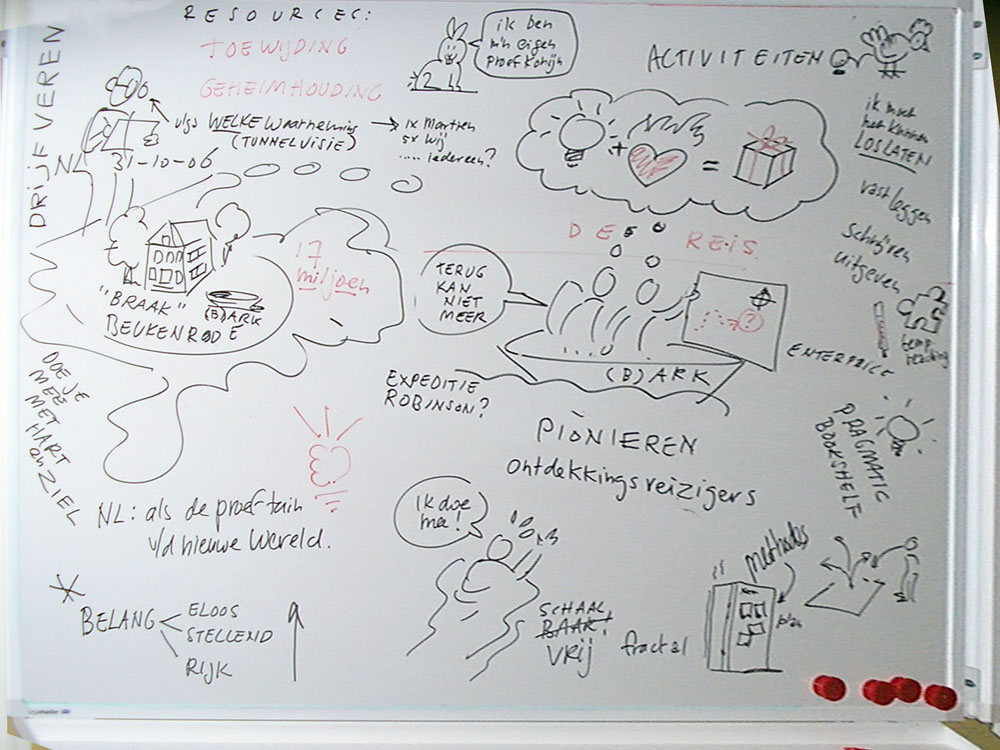 RESOURCES:
TOEWIJDING
GEHEIMHOUDING
DRIJFVEREN
ik ben
m'n eigen
proefkonijn
ACTIVITEITEN
WELKE Waarneming
(TUNNELVISIE)
ik Martien
wij
..... iedereen?
NL 31-10-06
ik moet
het kunnen
LOSLATEN
vastleggen
Schrijven
uitgeven
+
=
DE REIS
17
miljoen
TERUG
KAN
NIET
MEER
"BRAAK"
(B)ARK
BEUKENRODE
?
(B) ARK
ENTERPRICE
EXPEDITIE
ROBINSON?
DOE JE
MEE
MET
HART
en ZIEL
PIONIEREN
ontdekkingsreizigers
PRAGMATIC
BOOKSHELF
NL: als de proeftuin
v/d nieuwe wereld.
Ik doe
mee!
methodes
plan
BELANG
ELOOS
STELLEND
RIJK
SCHAAL
BAAR!
VRIJ
fractal